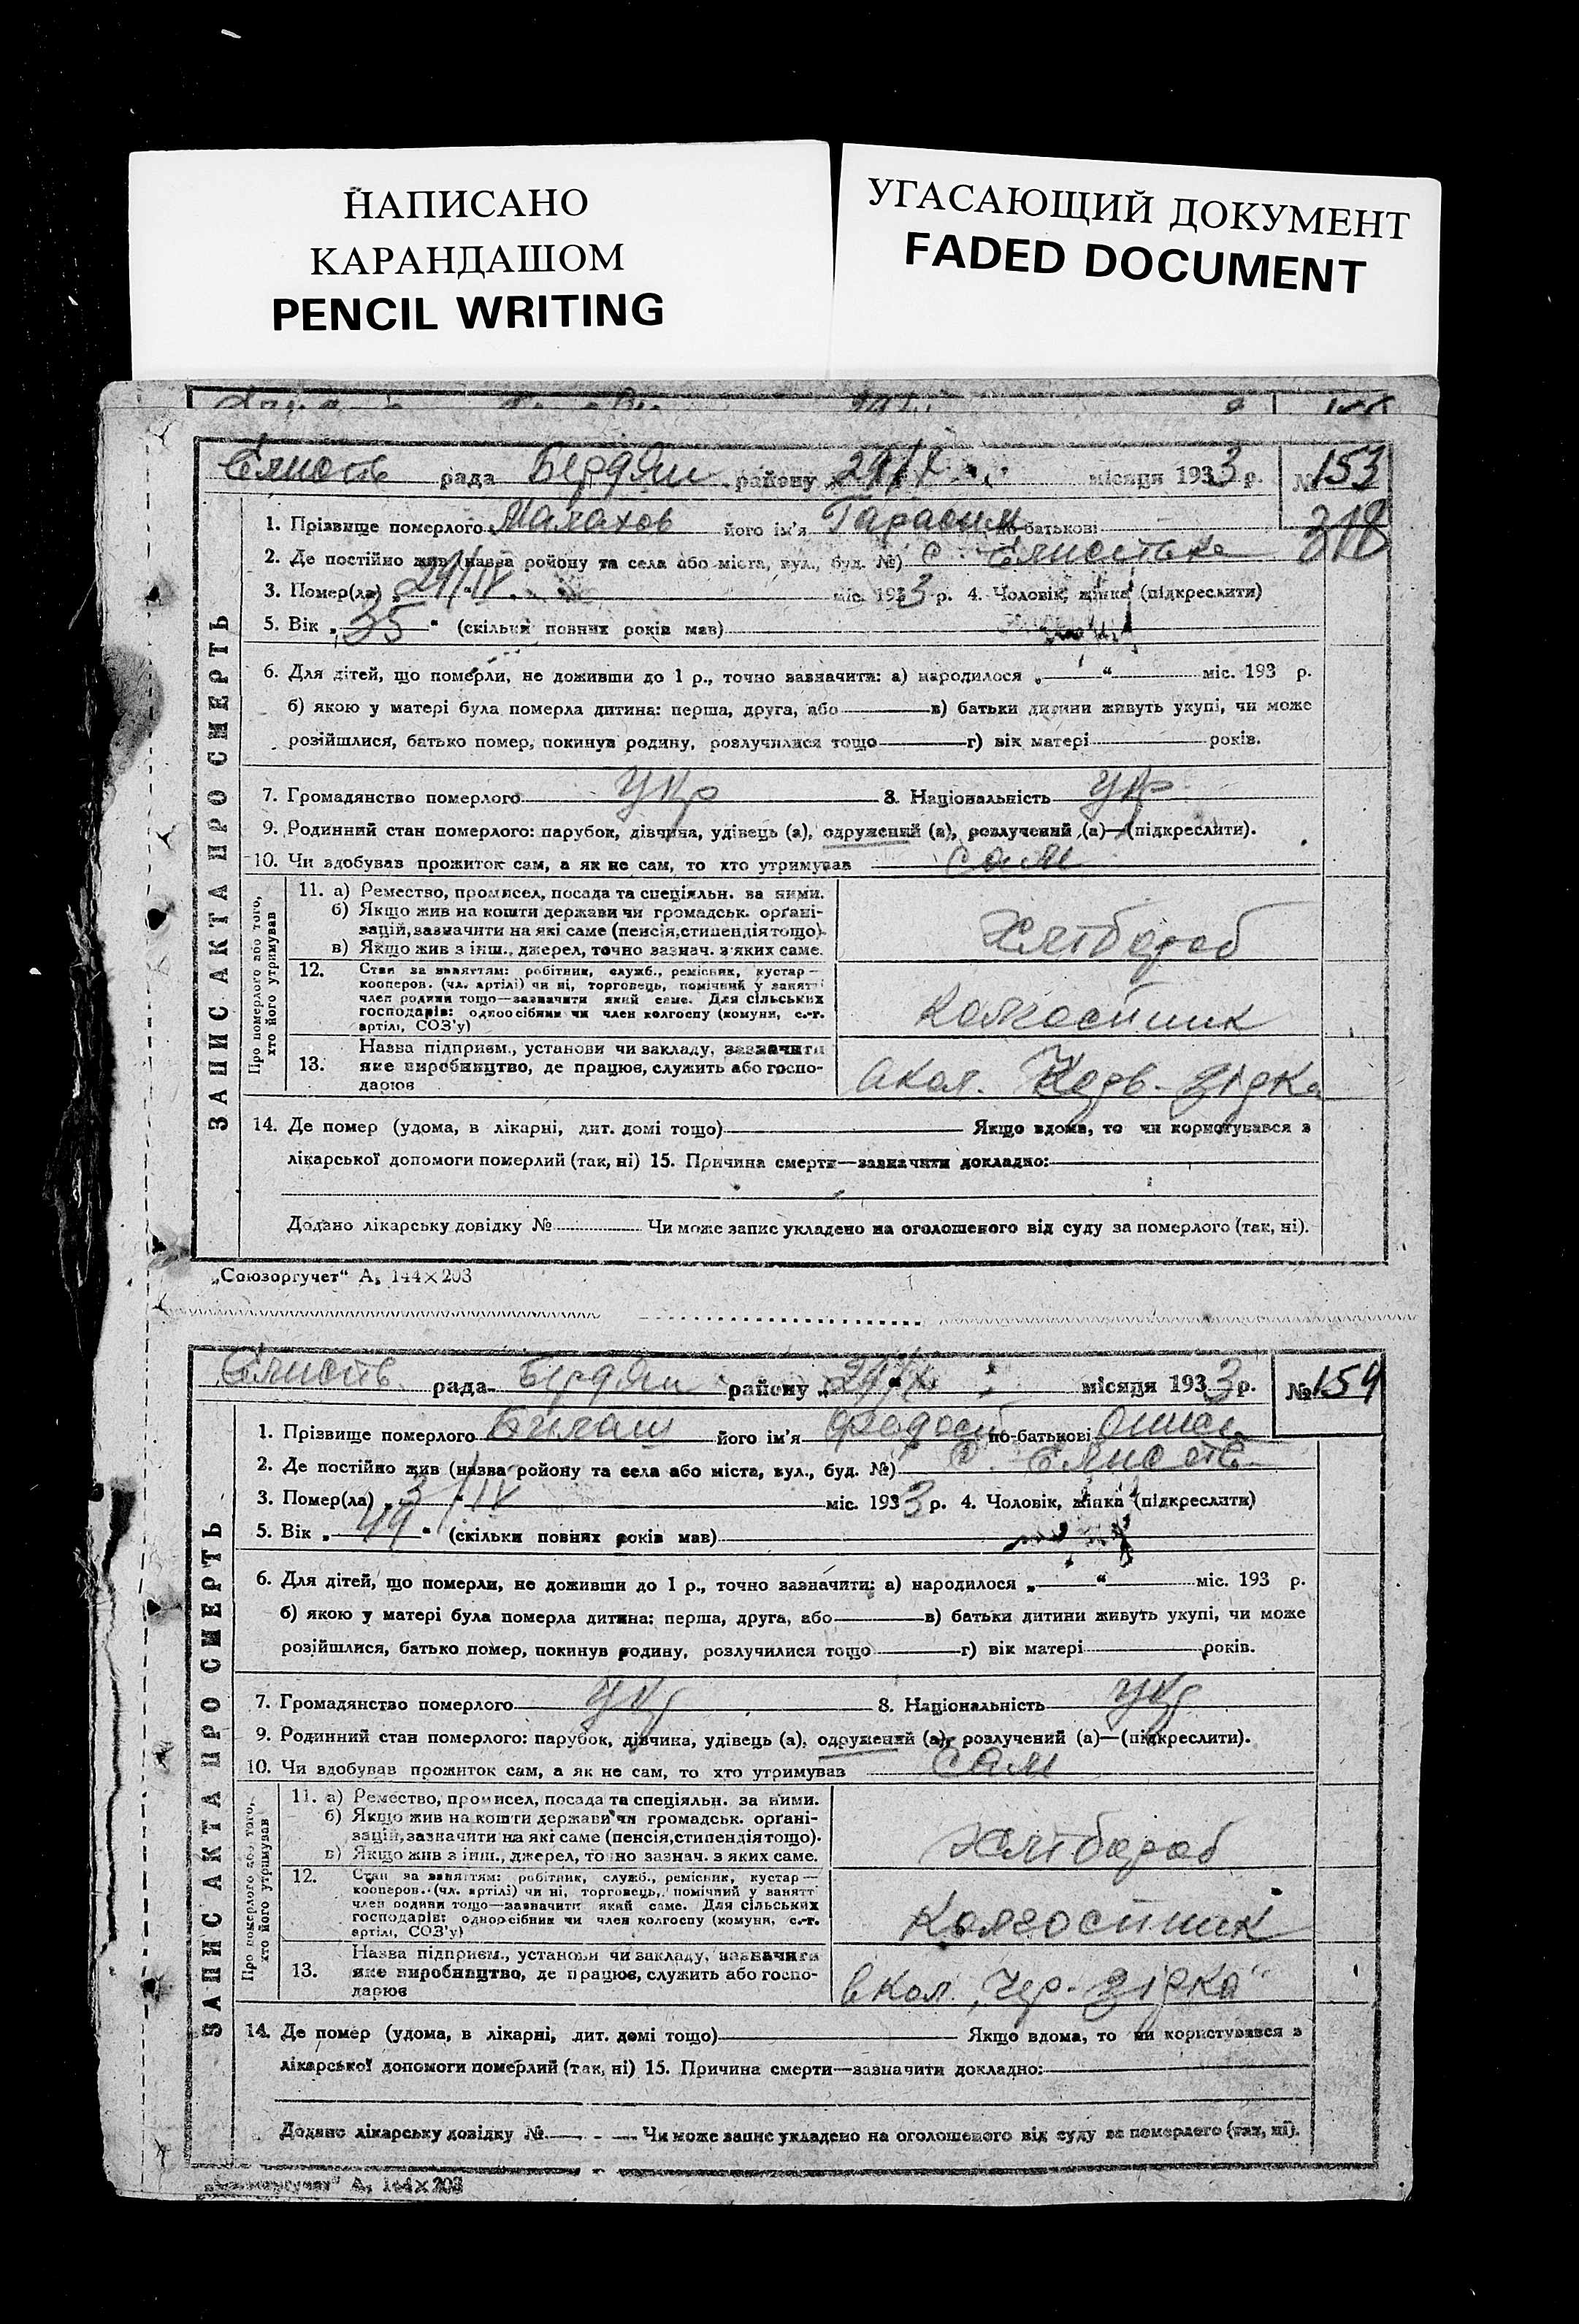 НАПИСАНО
КАРАНДАШОМ
PENCIL WRITING
УГАСАЮЩИЙ ДОКУМЕНТ
FADED DOCUMENT
рада Бердян району 29/X місяця 1933 р. № 153
318
1. Прізвище померлого Малахов його ім'я Гарасим по-батькові
2. Де постійно жив (назва ройону та села або міста, вул., буд. №) с.
3. Помер(ла) „29/IV“ міс. 1933 р. 4. Чоловік, жінка (підкреслити)
5. Вік „35“ (скільки повних років мав)
6. Для дітей, що померли, не доживши до 1 р., точно зазначити: а) народилося „ “ міс. 193 р.
б) якою у матері була померла дитина: перша, друга, або в) батьки дитини живуть укупі, чи може
розійшлися, батько помер, покинув родину, розлучилися тощо г) вік матері років.
7. Громадянство померлого Укр 8. Національність Укр
9. Родинний стан померлого: парубок, дівчина, удівець (а), одружений (а), розлучений (а)—(підкреслити).
10. Чи здобував прожиток сам, а як не сам, то хто утримував сам
ЗАПИС АКТА ПРО СМЕРТЬ
Про померлого або того,
хто його утримував
11. а) Ремество, промисел, посада та спеціяльн. за ними.
б) Якщо жив на кошти держави чи громадськ. орґані-
зацій, зазначити на які саме (пенсія, стипендія тощо).
в) Якщо жив з інш., джерел, точно зазнач. з яких саме.
Хлібороб
12. Стан за заняттям: робітник, служб., ремісник, кустар—
кооперов. (чл. артілі) чи ні, торговець, помічний у занятті
член родини тощо—зазначити який саме. Для сільських
господарів: одноосібник чи член колгоспу (комуни, с.-г.
артілі, СОЗ'у)
Колгоспник
13. Назва підприєм., установи чи закладу, зазначити
яке виробництво, де працює, служить або госпо-
дарює
кол. зірка
14. Де помер (удома, в лікарні, дит. домі тощо) Якщо вдома, то чи користувався з
лікарської допомоги померлий (так, ні) 15. Причина смерти—зазначити докладно:
Додано лікарську довідку № Чи може запис укладено на оголошеного від суду за померлого (так, ні).
„Союзоргучет“ А, 144×203
рада Бердян району 29/X місяця 1933 р. № 154
1. Прізвище померлого Билаш його ім'я Федось по-батькові
2. Де постійно жив (назва ройону та села або міста, вул., буд. №) с.
3. Помер(ла) „3/IV“ міс. 1933 р. 4. Чоловік, жінка (підкреслити)
5. Вік „44“ (скільки повних років мав)
6. Для дітей, що померли, не доживши до 1 р., точно зазначити: а) народилося „ “ міс. 193 р.
б) якою у матері була померла дитина: перша, друга, або в) батьки дитини живуть укупі, чи може
розійшлися, батько помер, покинув родину, розлучилися тощо г) вік матері років.
7. Громадянство померлого Укр 8. Національність Укр
9. Родинний стан померлого: парубок, дівчина, удівець (а), одружений (а), розлучений (а)—(підкреслити).
10. Чи здобував прожиток сам, а як не сам, то хто утримував сам
ЗАПИС АКТА ПРО СМЕРТЬ
Про померлого або того,
хто його утримував
11. а) Ремество, промисел, посада та спеціяльн. за ними.
б) Якщо жив на кошти держави чи громадськ. орґані-
зацій, зазначити на які саме (пенсія, стипендія тощо).
в) Якщо жив з інш., джерел, точно зазнач. з яких саме.
Хлібороб
12. Стан за заняттям: робітник, служб., ремісник, кустар—
кооперов. (чл. артілі) чи ні, торговець, помічний у занятті
член родини тощо—зазначити який саме. Для сільських
господарів: одноосібник чи член колгоспу (комуни, с.-г.
артілі, СОЗ'у)
Колгоспник
13. Назва підприєм., установи чи закладу, зазначити
яке виробництво, де працює, служить або госпо-
дарює
в кол. „Чер. зірка“
14. Де помер (удома, в лікарні, дит. домі тощо) Якщо вдома, то чи користувався з
лікарської допомоги померлий (так, ні) 15. Причина смерти—зазначити докладно:
Додано лікарську довідку № Чи може запис укладено на оголошеного від суду за померлого (так, ні).
„Союзоргучет“ А, 144×203